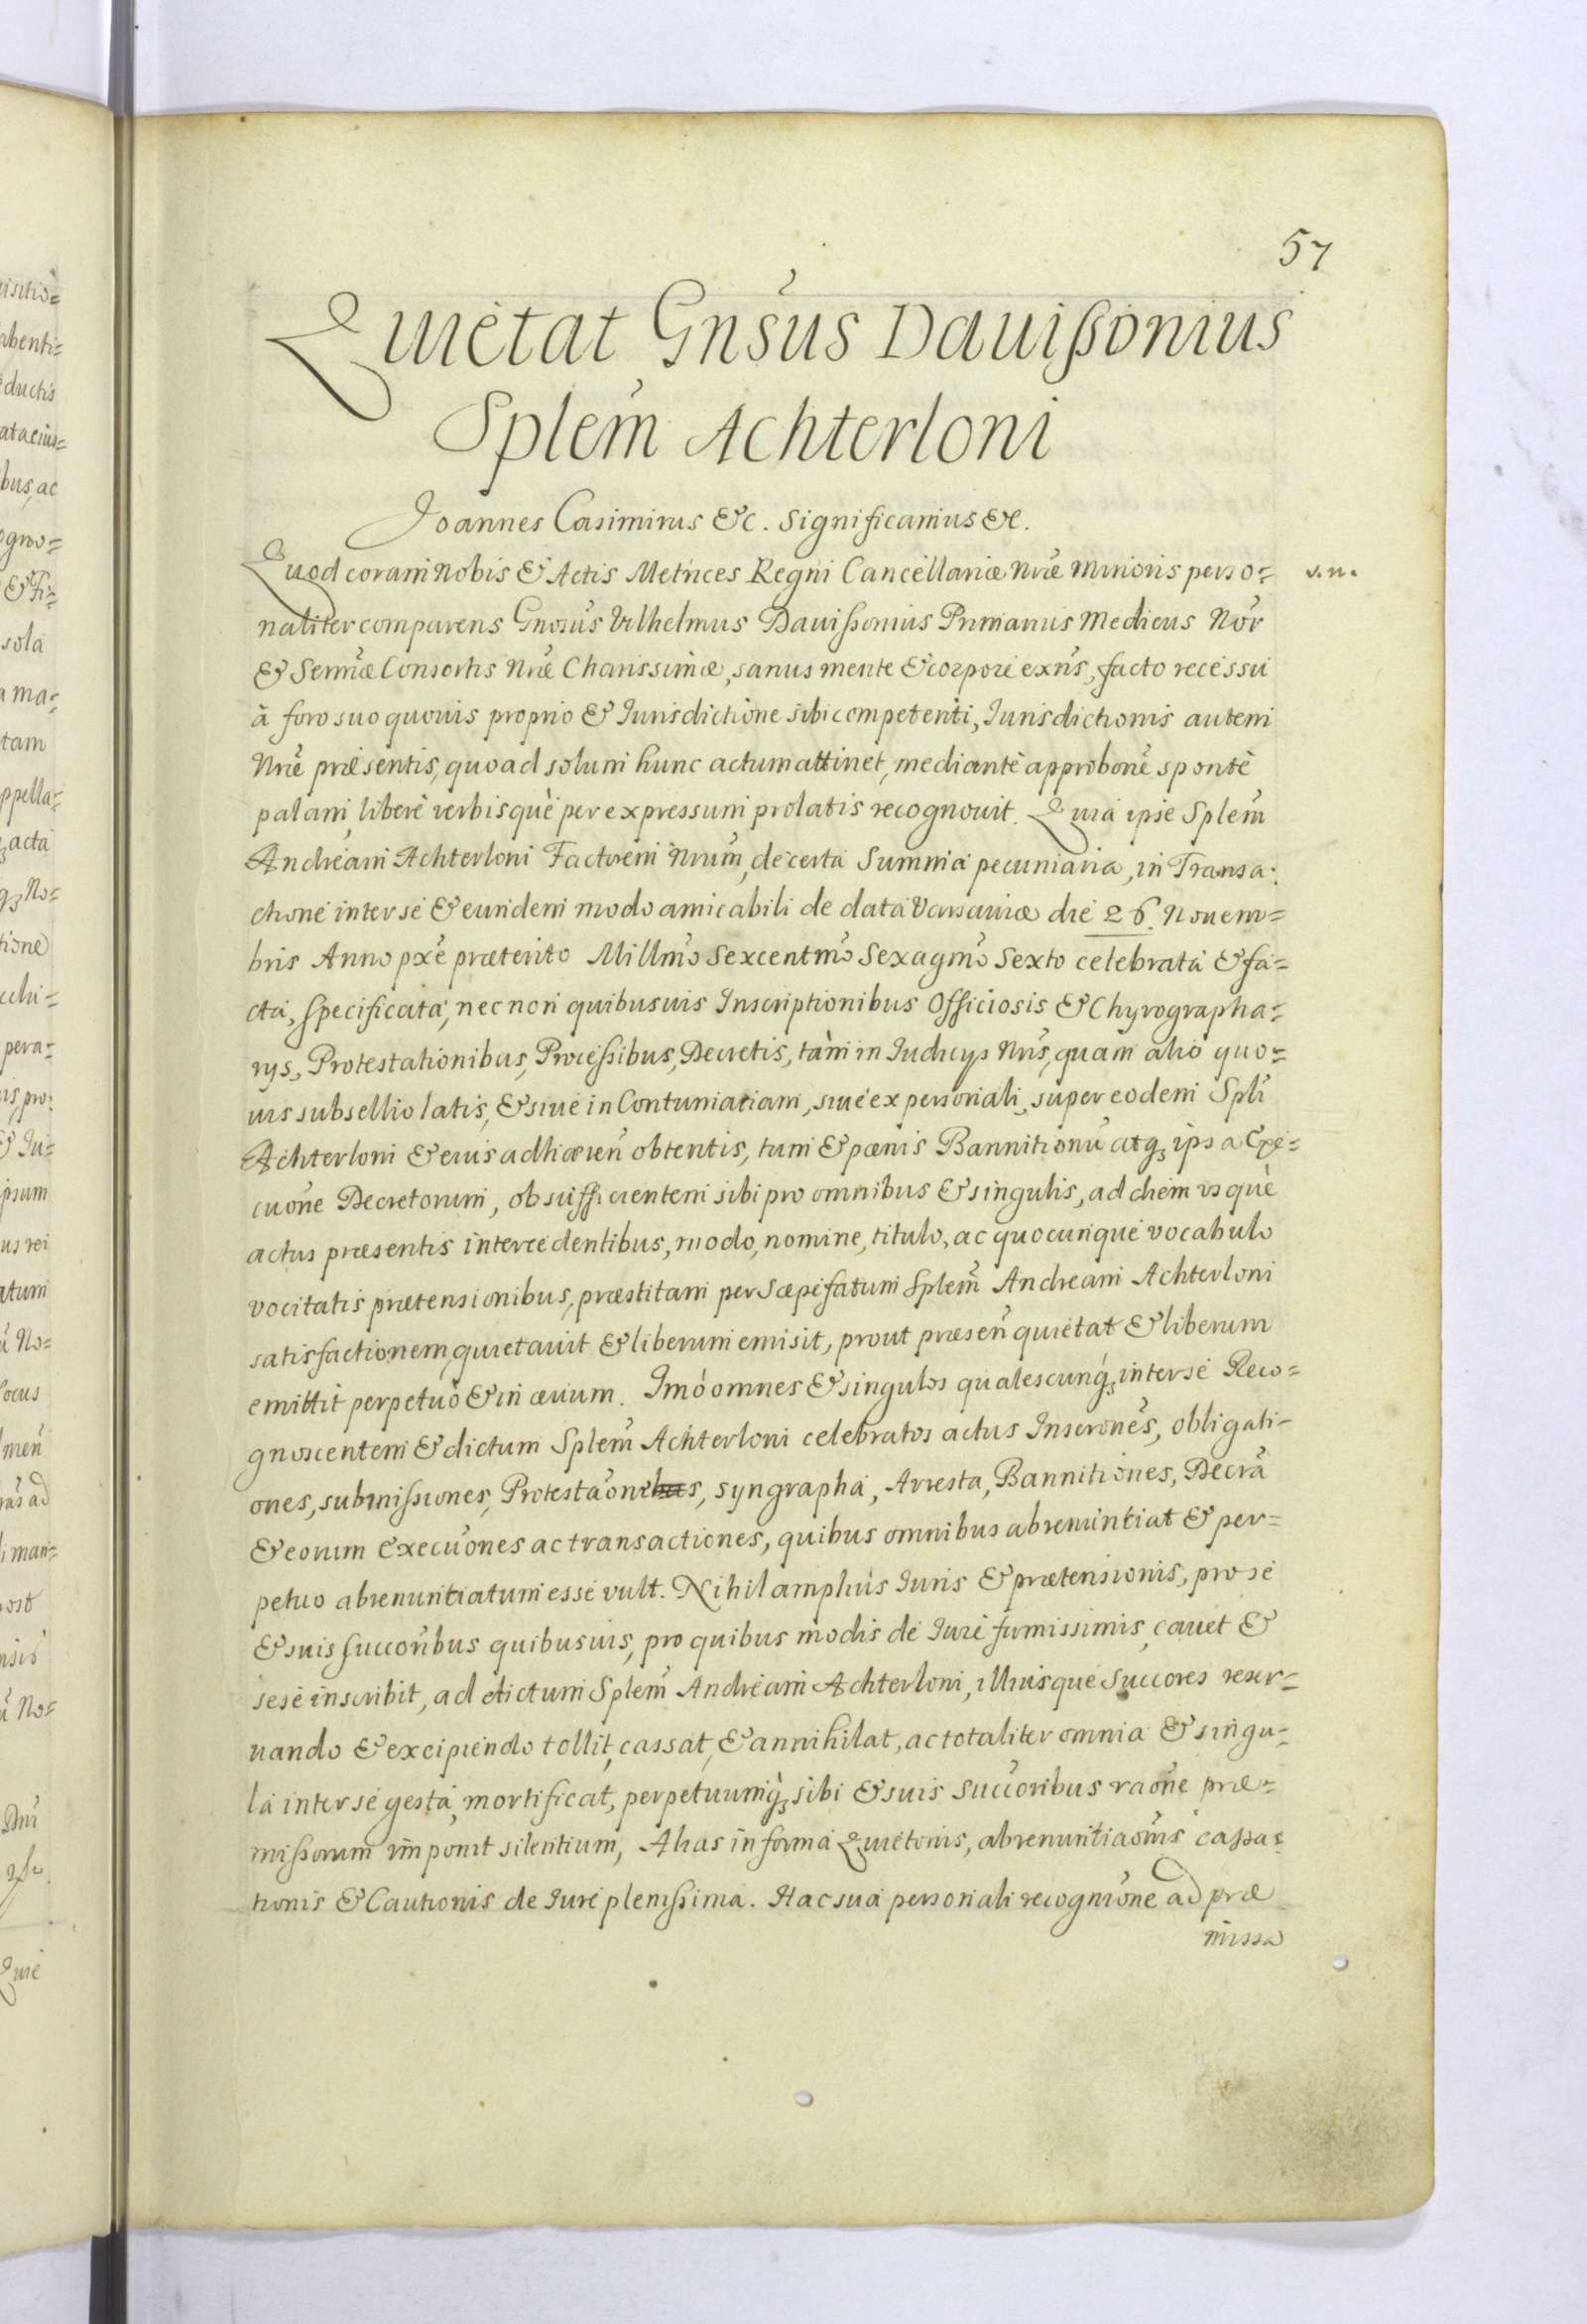 57
Quietat Gnsus Dauißonius
Splem Achterloni
Joannes Casimirus &c. Significamus &c.
Quod coram Nobis & Actis Metrices Regni Cancellariæ Nræ Minoris perso= v. n.
naliter comparens Gnosus Vilhelmus Dauißonius Primarius Medicus Nor
& Sermæ Consortis Nræ Charissimæ, sanus mente & corpore exns, facto recessu
à foro suo quouis proprio & Iurisdictione sibi competenti, Iurisdictionis autem
Nræ præsentis, quoad solum hunc actum attinet, mediante approbone sponte
palam, libere verbisque per expressum prolatis recognouit. Quia ipse Splem
Andream Achterloni Factorem Nrum, de certa Summa pecuniaria, in Transa:
ctione inter se & eundem modo amicabili de data Varsauiæ die 26. Nouem=
bris Anno pxe præterito Millmo Sexcentmo Sexagmo Sexto celebrata & fa=
cta, specificata, necnon quibusuis Inscriptionibus Officiosis & Chyrographa=
rys, Protestationibus, Proceßibus, Decretis, tam in Iudicys Nris, quam alio quo=
uis subsellio latis, & siue in Contumatiam, siue ex personali, super eodem Spli
Achterloni & eius adhæren obtentis, tum & pænis Bannitionu atq ipsa Exe=
cuone Decretorum, ob sufficientem sibi pro omnibus & singulis, ad diem vsque
actus præsentis intercedentibus, modo, nomine, titulo, ac quocunque vocabulo
vocitatis prætensionibus, præstitam per Sæpefatum Splem Andream Achterloni
satisfactionem, quietauit & liberum emisit, prout præsen quietat & liberum
emittit perpetuo & in æuum. Imò omnes & singulos qualescunq inter se Reco=
gnoscentem & dictum Splem Achterloni celebratos actus Inscrones, obligati=
ones, submißiones, Protestaones, syngrapha, Arresta, Bannitiones, Decra
& eorum execuones ac transactiones, quibus omnibus abrenuntiat & per=
petuo abrenuntiatum esse vult. Nihil amplius Iuris & prætensionis, pro se
& suis succoribus quibusuis, pro quibus modis de Iure firmissimis, cauet &
sese inscribit, ad dictum Splem Andream Achterloni, illiusque Succores reser=
uando & excipiendo tollit, cassat, & annihilat, ac totaliter omnia & singu=
la inter se gesta, mortificat, perpetuumq sibi & suis Succoribus raone præ=
mißorum imponit silentium, Alias in forma Quietonis, abrenuntiaonis caßa=
tionis & Cautionis de Iure plenißima. Hac sua personali recognione ad præ
missa